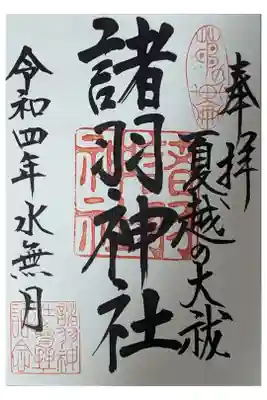 奉拝
夏越の大祓
諸羽神社
令和四年水無月